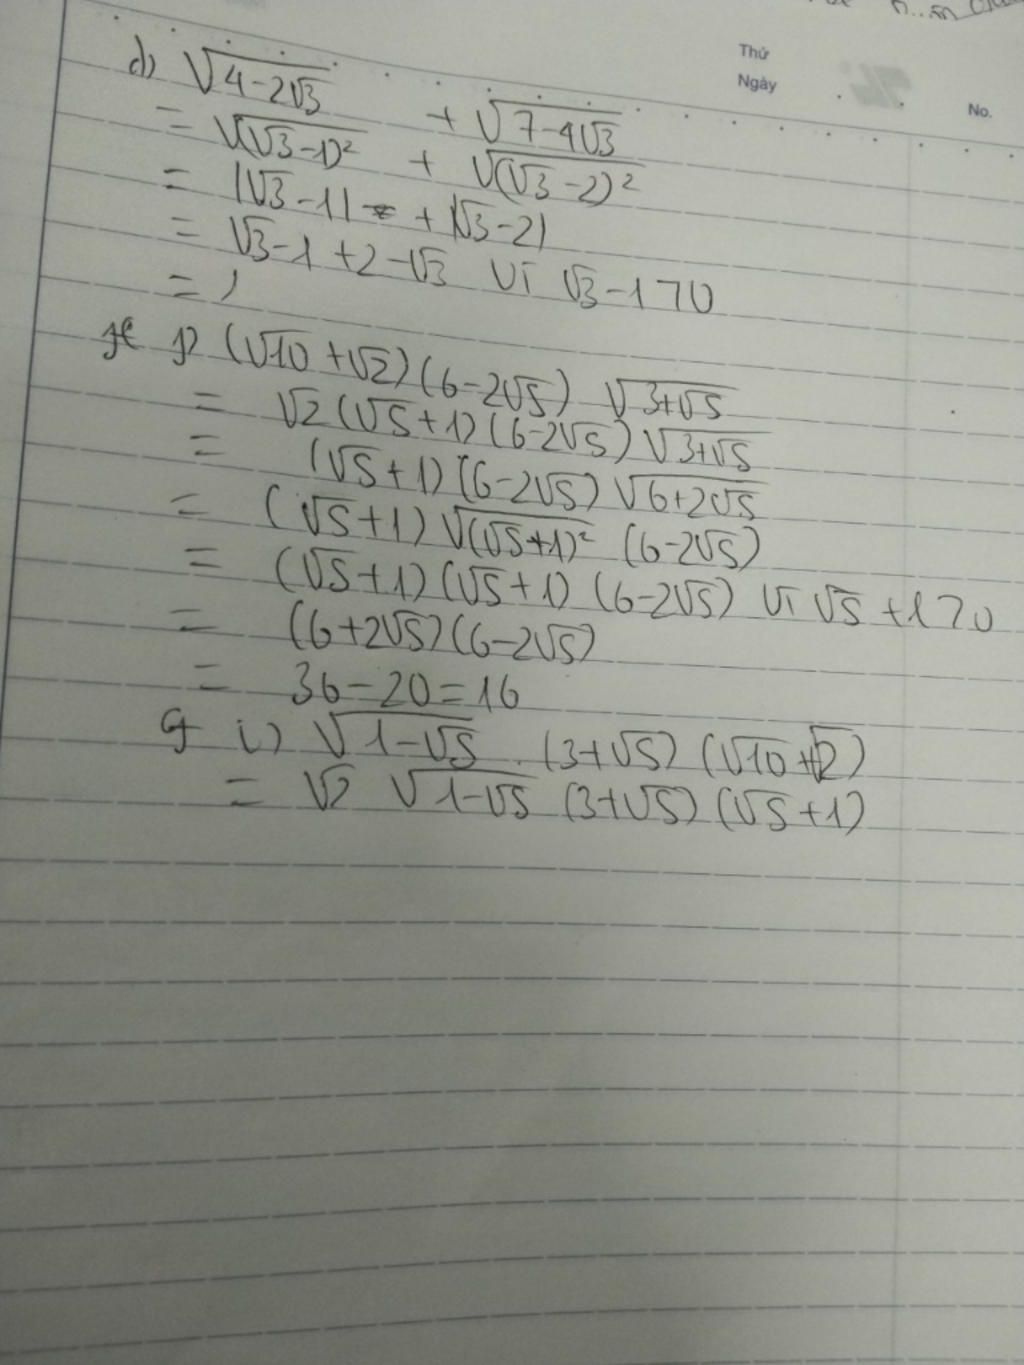 Thứ
Ngày
No.
d) √(4-2√3) + √(7-4√3)
= √((√3-1)²) + √((√3-2)²)
= |√3-1| + |√3-2|
= √3-1+2-√3 vì √3-1>0
= 1
(√10+√2)(6-2√5) √(3+√5)
= √2(√5+1)(6-2√5)√(3+√5)
= (√5+1)(6-2√5)√(6+2√5)
= (√5+1)√((√5+1)²) (6-2√5)
= (√5+1)(√5+1)(6-2√5) vì √5+1>0
= (6+2√5)(6-2√5)
= 36-20=16
i) √(1-√5) . (3+√5)(√10+√2)
= √2 √(1-√5) (3+√5)(√5+1)